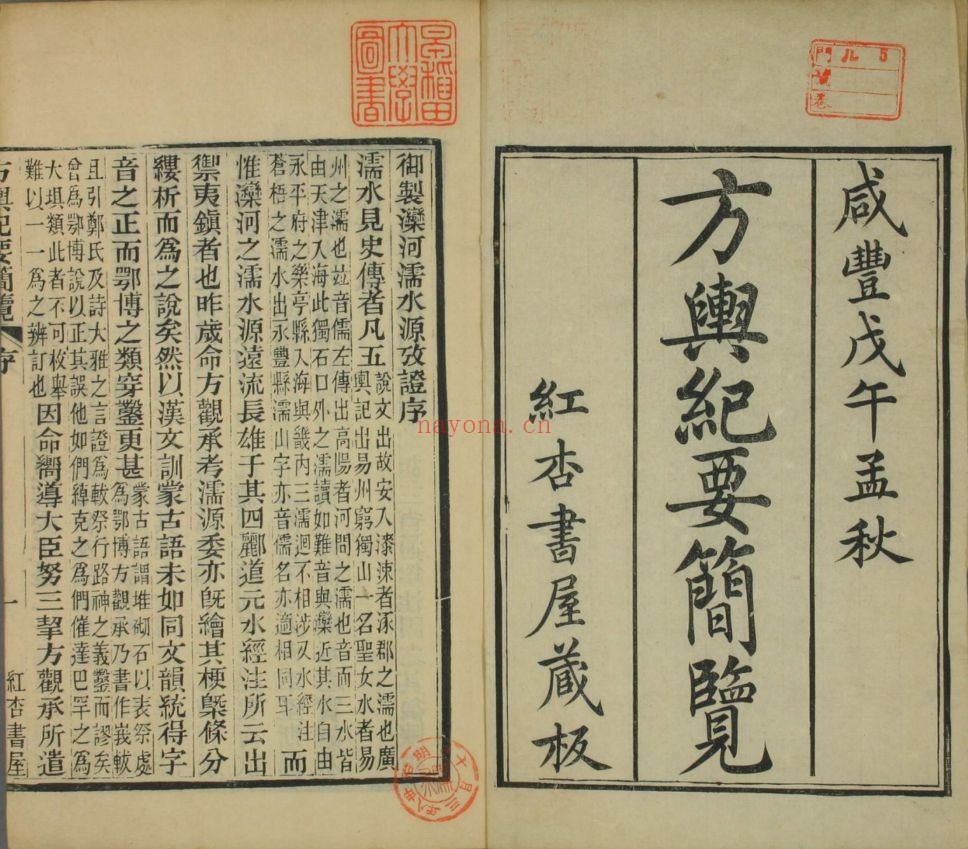 咸豐戊午孟秋
方輿紀要簡覽
紅杏書屋藏板
御製灤河濡水源攷證序
濡水見史傳者凡五
說文出故安入漆涑者涿郡之濡也廣
輿記出易州窮獨山一名聖女水者易
州之濡也竝音儒左傳出高陽者河間之濡也音而三水皆
由天津入海此獨石口外之濡讀如難音與灤近其水自由
永平府之樂亭縣入海與畿内三濡迥不相涉又水經注
蒼梧之濡水出永豐縣濡山字亦音儒名亦適相同耳
而
惟灤河之濡水源遠流長雄于其四酈道元水經注所云出
禦夷鎮者也昨歲命方觀承考濡源委亦旣繪其梗槩條分
縷析而爲之說矣然以漢文訓蒙古語未如同文韻統得字
音之正而鄂博之類穿鑿更甚
蒙古語謂堆砌石以表祭處
爲鄂博方觀承乃書作峩軷
且引鄭氏及詩大雅之言證爲軷祭行路神之義鑿而謬矣
曾爲鄂博說以正其誤他如們綽克之爲們催達巴罕之爲
大垻類此者不可枚舉
難以一一爲之辨訂也
因命嚮導大臣努三挈方觀承所遣
方輿紀要簡覽 序 一 紅杏書屋
早稻田大學圖書
門
號
卷
nayona.cn